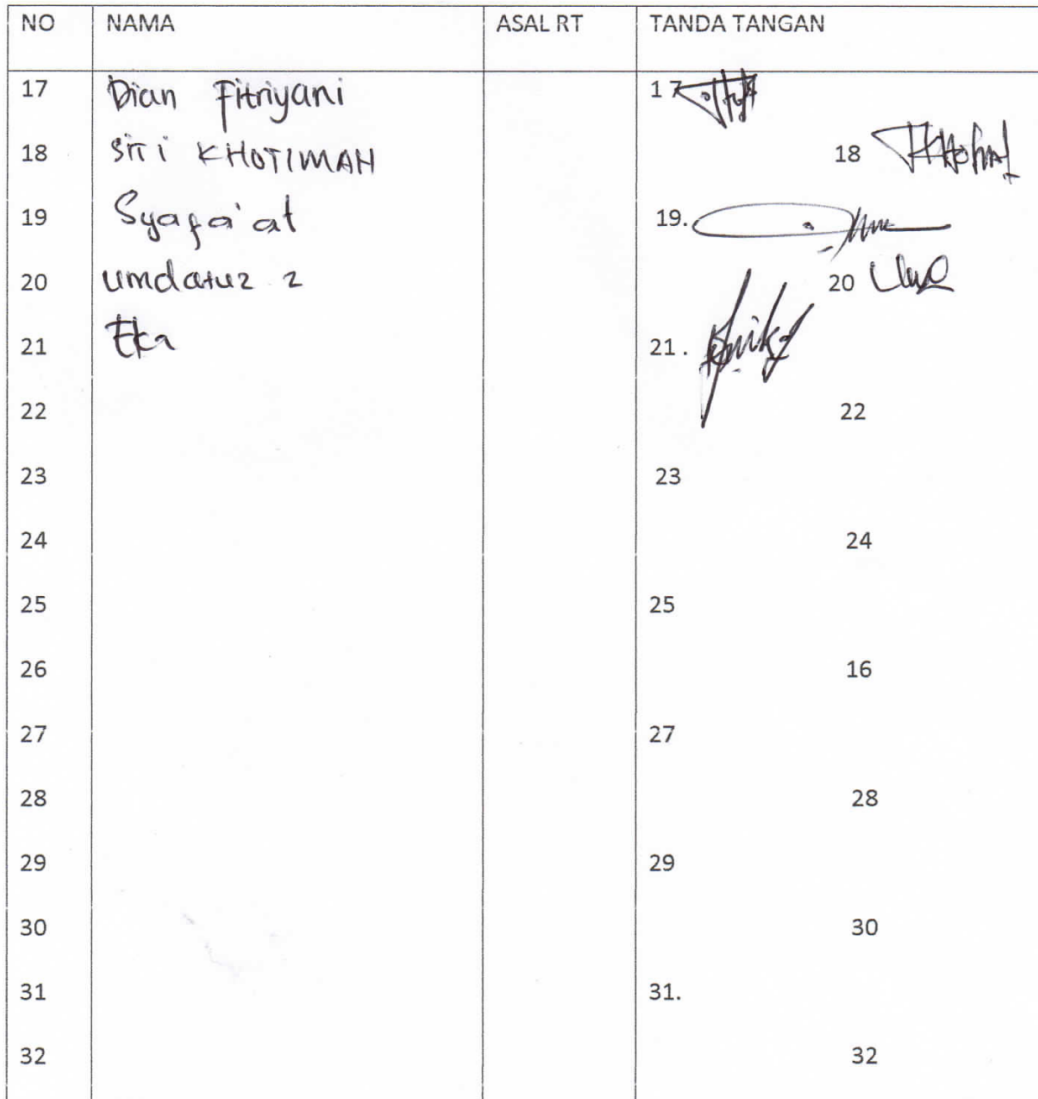 NO NAMA ASAL RT TANDA TANGAN
17 Dian Fitriyani 17
18 SITI KHOTIMAH 18
19 Syafa'at 19.
20 umdatuz z 20
21 Eka 21.
22 22
23 23
24 24
25 25
26 16
27 27
28 28
29 29
30 30
31 31.
32 32